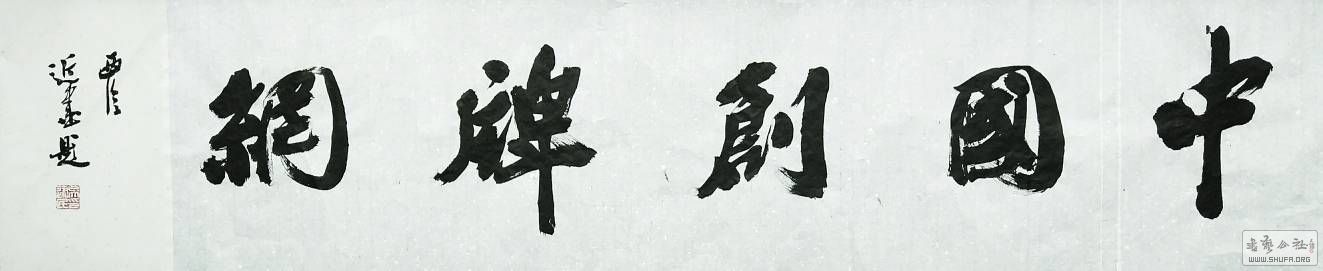 中國創牌網
近題
书藝公社
WWW.SHUFA.ORG